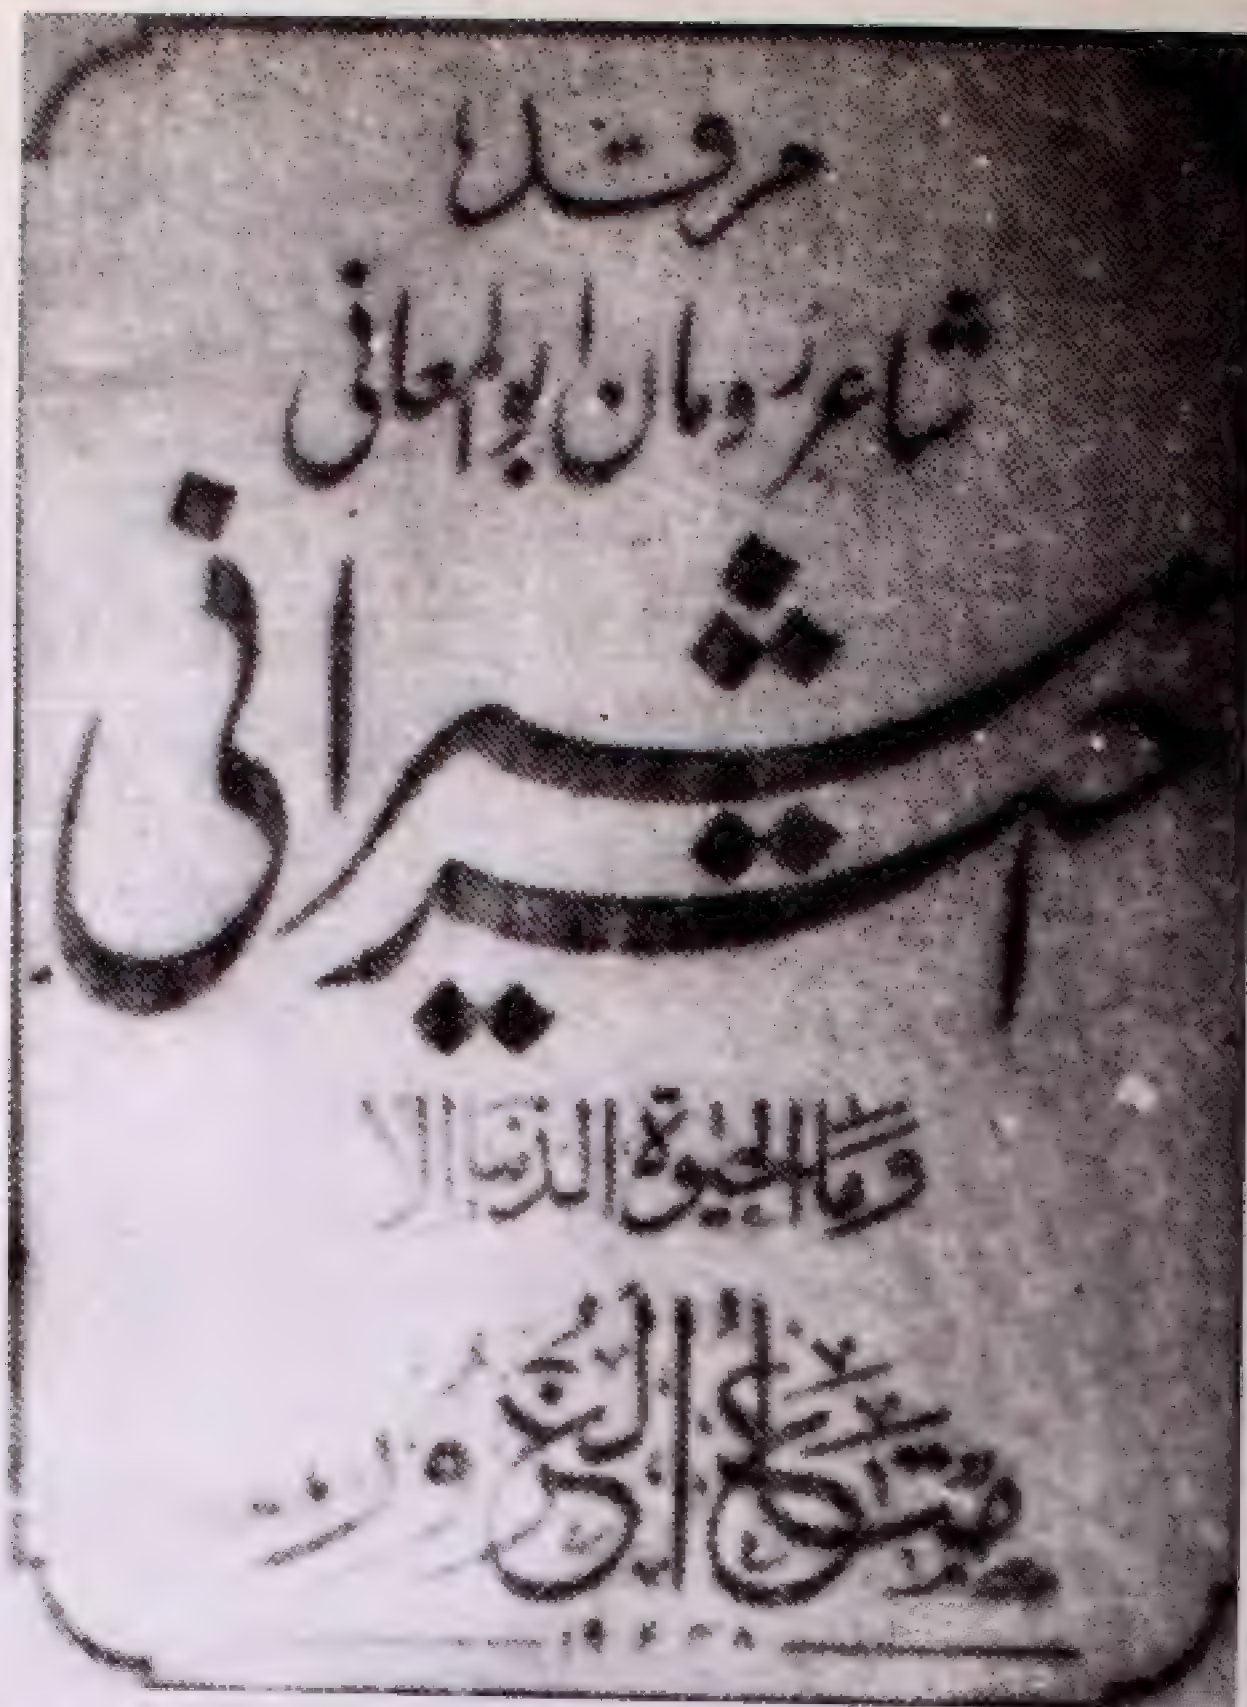 مرقد
شاعرِ رومان ابوالمعانی
اختر شیرانی
وَمَا الْحَيٰوةُ الدُّنْيَا اِلَّا
مَتَاعُ الْغُرُوْرِ